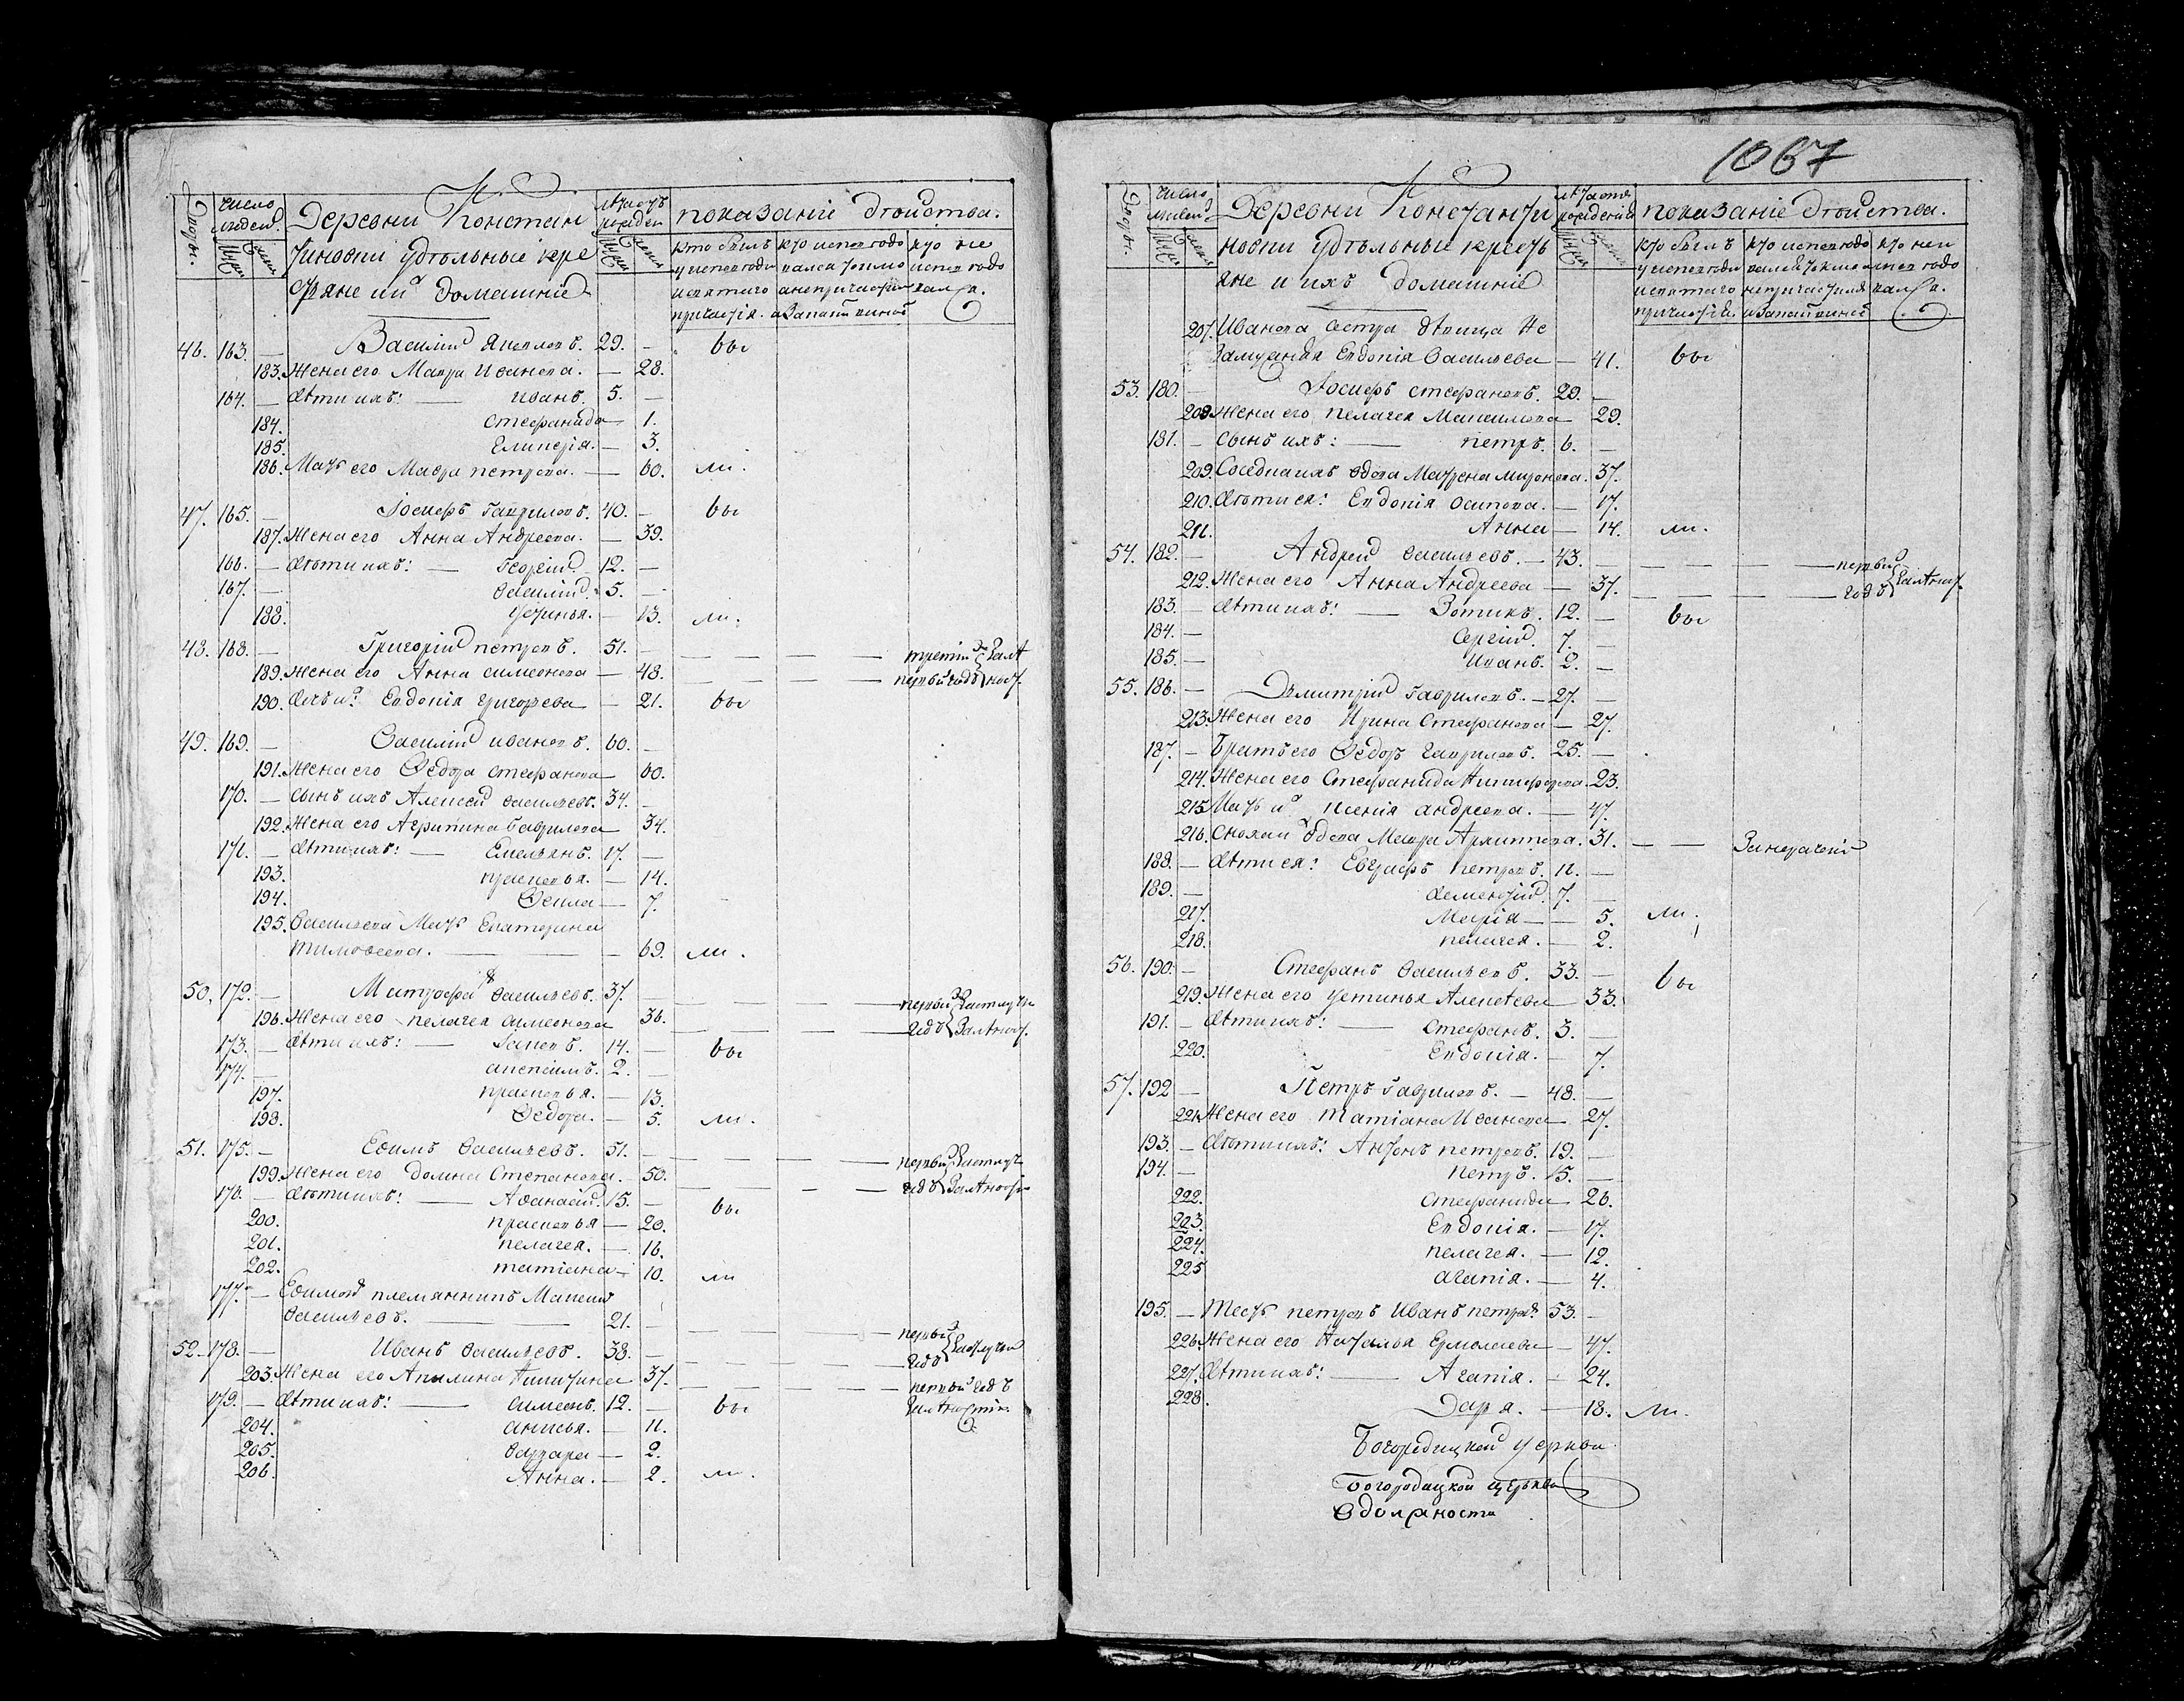 Деревни Констан
тиновки удѣльные кре
стяне и ихъ домашніе
Дворы.
Число людей.
Мужеска
женска
показаніе дѣйства.
кто былъ у исповѣди и святаго причастія.
кто исповѣдовался токмо а не причастился и за какимъ виномъ
кто не исповѣдовался.
46. 163. — Василій Яковлевъ. 29. — бы
183. Жена его Мавра Иванова. — 28.
164. — Дѣти ихъ: — Иванъ. 5. —
184. Стефанида — 1.
185. Гликерія. — 3.
186. Мать его Мавра Петрова. — 60. ли.
47. 165. — Іосифъ Гавриловъ. 40. — бы
187. Жена его Анна Андреева. — 39.
166. — Дѣти ихъ: — Георгій. 12. —
167. — Василій. 5. —
188. Устинья. — 13. ли.
48. 168. — Григорій Петровъ. 51. — — — — третій
189. Жена его Анна Симеонова — 48. — — — — первый годъ
190. Дочь ихъ Евдокія Григорьева — 21. бы
49. 169. — Василій Ивановъ. 60. —
191. Жена его Ѳедора Стефанова — 60.
170. — Сынъ ихъ Алексей Васильевъ. 34. —
192. Жена его Агрипина Гаврилова — 34.
171. — Дѣти ихъ: — Емельянъ. 17. —
193. Прасковья. — 14.
194. Ѳекла — 7.
195. Васильева Мать Екатерина
Тимоѳеева. — — 69. ли.
50. 172. — Митрофанъ Васильевъ. 37. — — — — первый
196. Жена его Пелагея Симеонова 36. — — — — годъ
173. — Дѣти ихъ: — Іаковъ. 14. — бы
174. — 2. —
197. Прасковья. — 13.
198. Ѳедора. — 5. ли.
51. 175. — Еѳимъ Васильевъ. 51. — — — — первый
199. Жена его Домна Степанова. — 50. — — — — годъ
176. — Дѣти ихъ: — Аѳанасій. 15. — бы
200. Прасковья — 20.
201. Пелагея. — 16.
202. Татіана — 10. ли
177. — Еѳимовъ племянникъ
Васильевъ. — — 21. — — — — первый
52. 178. — Иванъ Васильевъ. 38. — — — — годъ
203. Жена его Акилина Никитина 37. — — — — первый годъ
179. — Дѣти ихъ: — Симеонъ. 12. — бы
204. Анисья. — 11.
205. Варвара — 2.
206. Анна. — 2. ли.
1067
Деревни Константи
новки удѣльные кресть
яне и ихъ домашніе
Дворы.
Число людей
показаніе дѣйства.
кто былъ у исповѣди и святаго причастія.
кто исповѣдовался токмо а не причастился и за какимъ виномъ
кто не исповѣдовался.
207. Иванова Сестра дѣвица Не
замужняя Евдокія Васильева — 41. бы
53. 180. — Іосифъ Стефановъ. 29. —
208. Жена его Пелагея Максимова — 29.
181. — Сынъ ихъ: — Петръ. 6. —
209. Соседка ихъ вдова Матрена Миронова. 37.
210. Дѣти ея: Евдокія Осипова. — 17.
211. Анна — 14. ли.
54. 182. — Андрей Васильевъ. — 43. — — — — первый
212. Жена его Анна Андреева — 37. — — — — годъ
183. — Дѣти ихъ: — Зотикъ. 12. — бы
184. — Сергій. 7. —
185. — Иванъ. 2. —
55. 186. — Димитрій Гавриловъ. — 27. —
213. Жена его Ирина Стефанова — 27.
187. — Братъ его Ѳедоръ Гавриловъ. 25. —
214. Жена его Стефанида Никифорова. 23.
215. Мать ихъ Ксенія Андреева. — 47.
216. Сноха ихъ Вдова Мавра Архипова. 31. — —
188. — Дѣти ея: Евграфъ Петровъ. 11. —
189. — Дементій. 7. —
217. Марія — — 5. ли.
218. Пелагея. — 2.
56. 190. — Стефанъ Васильевъ. 33. — бы
219. Жена его Устинья Алексѣева — 33.
191. — Дѣти ихъ: — Стефанъ. 3. —
220. Евдокія. — 7.
57. 192 — Петръ Гавриловъ. — 48. —
221. Жена его Татіана Иванова — 27.
193. — Дѣти ихъ: Антонъ Петровъ. 19. —
194. — Петръ. 15. —
222. Стефанида — 26.
223. Евдокія. — 17.
224. Пелагея. — 12.
225 Агапія. — 4.
195. — Тесть Петровъ Иванъ Петровъ 53. —
226. Жена его Наталья Ермолаева — 47.
227. Дѣти ихъ: — Агапія. — 24.
228. Дарья. — 18. ли.
Богородицкой церкви
Богородицкой церкви
В должности